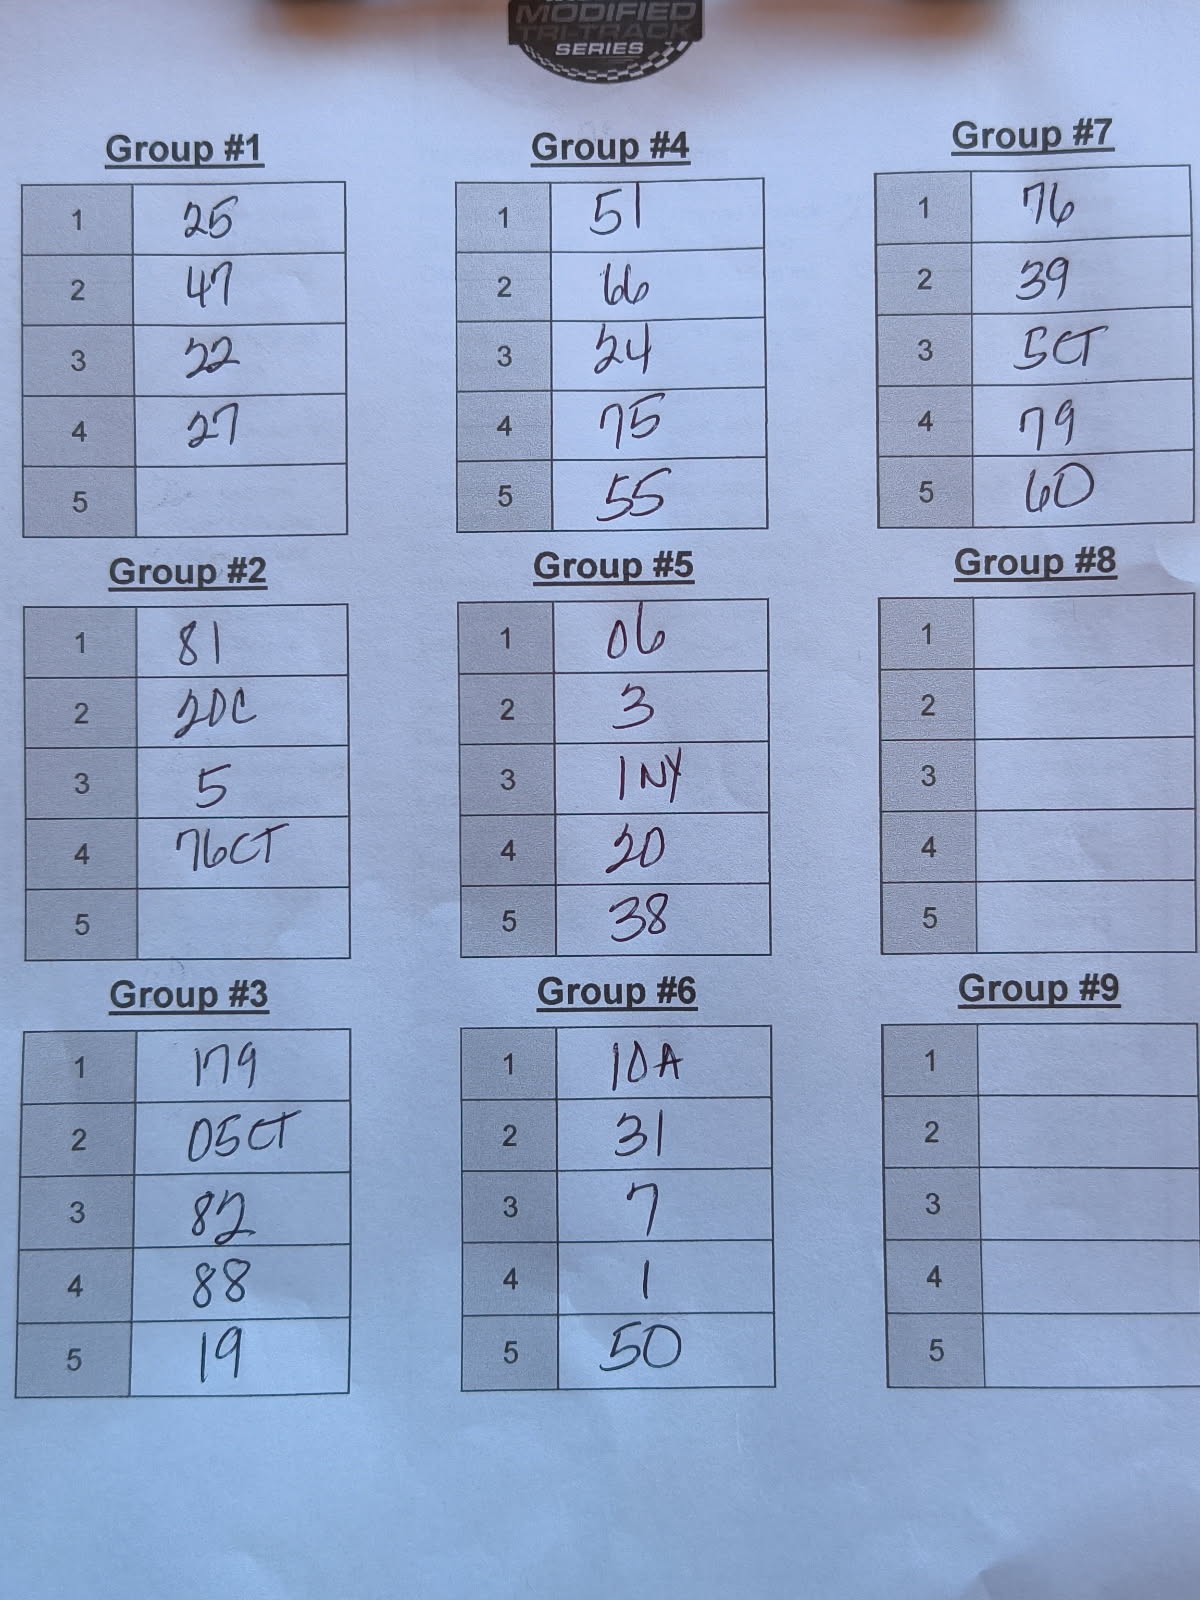 MODIFIED
TRI-TRACK
SERIES
Group #1
1 25
2 47
3 22
4 27
5
Group #2
1 81
2 20C
3 5
4 76CT
5
Group #3
1 179
2 05CT
3 82
4 88
5 19
Group #4
1 51
2 66
3 24
4 75
5 55
Group #5
1 06
2 3
3 1NY
4 20
5 38
Group #6
1 10A
2 31
3 7
4 1
5 50
Group #7
1 76
2 39
3 5CT
4 79
5 60
Group #8
1
2
3
4
5
Group #9
1
2
3
4
5